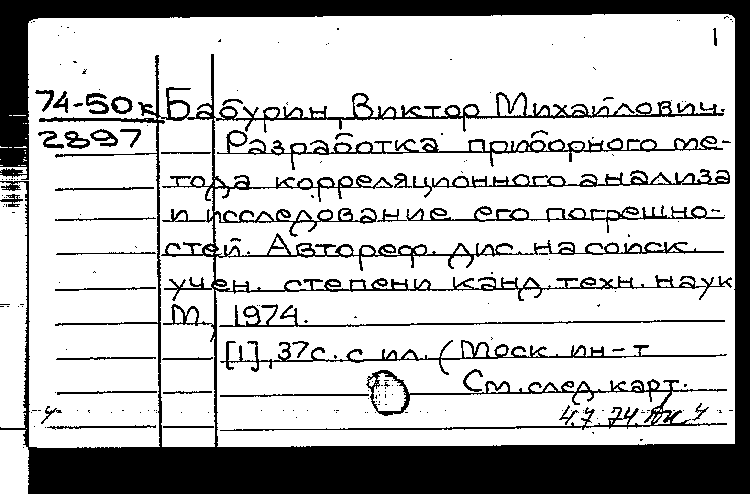 1
74-50к Бабурин, Виктор Михайлович.
2897 Разработка приборного ме-
тода корреляционного анализа
и исследование его погрешно-
стей. Автореф. дис. на соиск.
учен. степени канд. техн. наук
М., 1974.
[1], 37с. с ил. (Моск. ин-т
См. след. карт.
4.7.74.